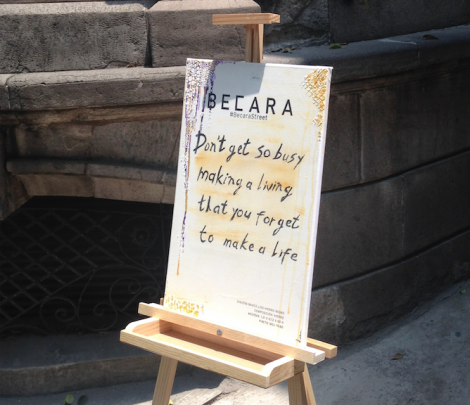 BECARA
#BecaraStreet
Don't get so busy
making a living
that you forget
to make a life